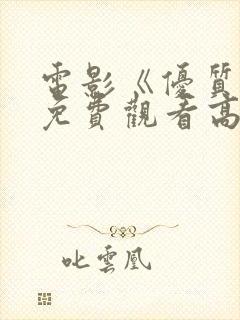 電影《優質
免費觀看高
叱雲凰